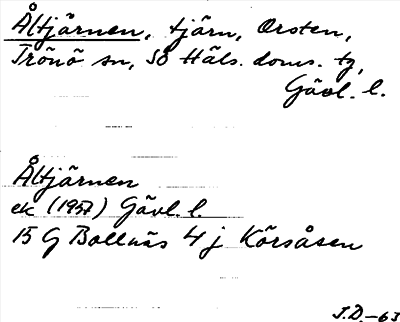 Åltjärnen, tjärn, Orsten,
Trönö sn, SÖ Häls. doms. tg,
Gävl. l.
Åltjärnen
ek (1957) Gävl. l.
15 G Bollnäs 4 j Körsåsen
J.D.-63